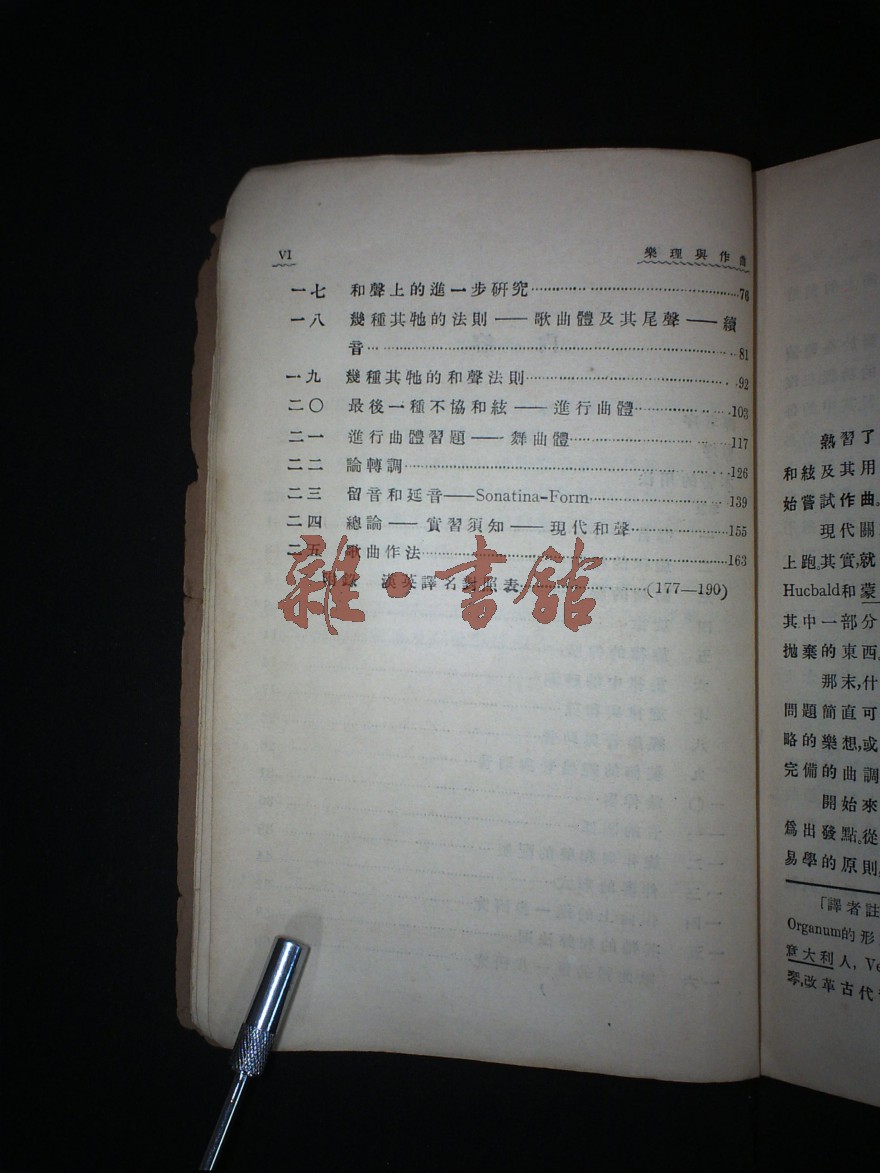 VI 樂理與作曲
一七 和聲上的進一步研究……76
一八 幾種其牠的法則——歌曲體及其尾聲——續
音……81
一九 幾種其牠的和聲法則……92
二〇 最後一種不協和絃——進行曲體……103
二一 進行曲體習題——舞曲體……117
二二 論轉調……126
二三 留音和延音——Sonatina-Form……139
二四 總論——實習須知——現代和聲……155
二五 歌曲作法……163
附錄 漢英譯名對照表……(177—190)
雜·書館
熟習了
和絃及其用
始嘗試作曲。
現代關
上跑,其實,就
Hucbald和蒙
其中一部分
拋棄的東西
那末,什
問題簡直可
略的樂想,或
完備的曲調
開始來
爲出發點。從
易學的原則,
「譯者註
Organum的形
意大利人, Ve
琴,改革古代